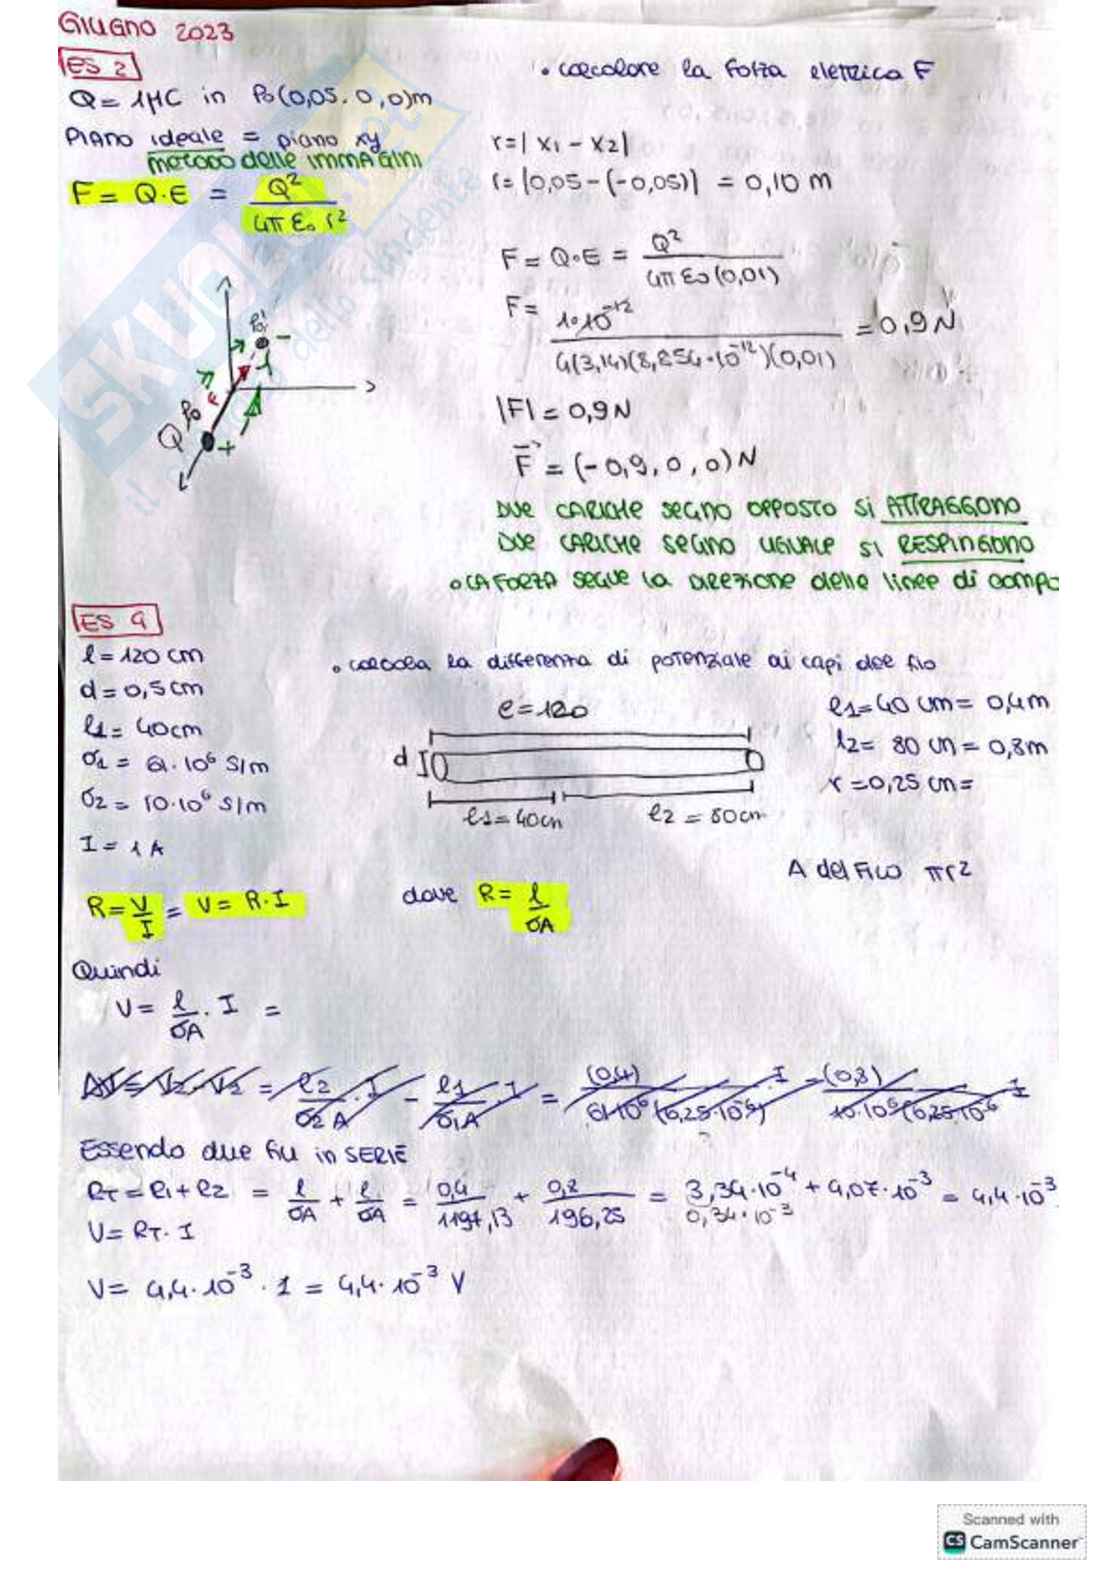 GIUGNO 2023
ES 2
Q = 1μC in P0(0,05.0,0)m
PIANO ideale = piano xy
METODO delle IMMAGINI
F = Q·E = Q² / 4π ε0 r²
P0'
-
F
P0
Q
+
• calcolare la forza elettrica F
r = | x1 - x2 |
r = |0,05 - (-0,05)| = 0,10 m
F = Q·E = Q² / 4π ε0 (0,01)
F = 1·10⁻¹² / 4(3,14)(8,854·10⁻¹²)(0,01) = 0,9 N
|F| = 0,9 N
F = (-0,9, 0, 0) N
DUE CARICHE SEGNO OPPOSTO SI ATTRAGGONO
DUE CARICHE SEGNO UGUALE SI RESPINGONO
• LA FORZA SEGUE LA DIREZIONE delle linee di campo
ES 4
l = 120 cm
d = 0,5 cm
l1 = 40cm
σ1 = 61·10⁶ S/m
σ2 = 10·10⁶ S/m
I = 1 A
• calcola la differenza di potenziale ai capi del filo
l = 120
d
l1 = 40cm
l2 = 80cm
l1 = 40 cm = 0,4m
l2 = 80 cm = 0,8m
r = 0,25 cm =
A del FILO πr²
R = V/I = V = R·I
dove R = l/σA
Quindi
V = l/σA · I =
Essendo due fili in SERIE
RT = R1 + R2 = l/σA + l/σA = 0,4/1197,13 + 0,8/196,25 = 3,34·10⁻⁴ + 4,07·10⁻³ = 4,4·10⁻³
0,34·10⁻³
V = RT · I
V = 4,4·10⁻³ · 1 = 4,4·10⁻³ V
Scanned with
CS CamScanner